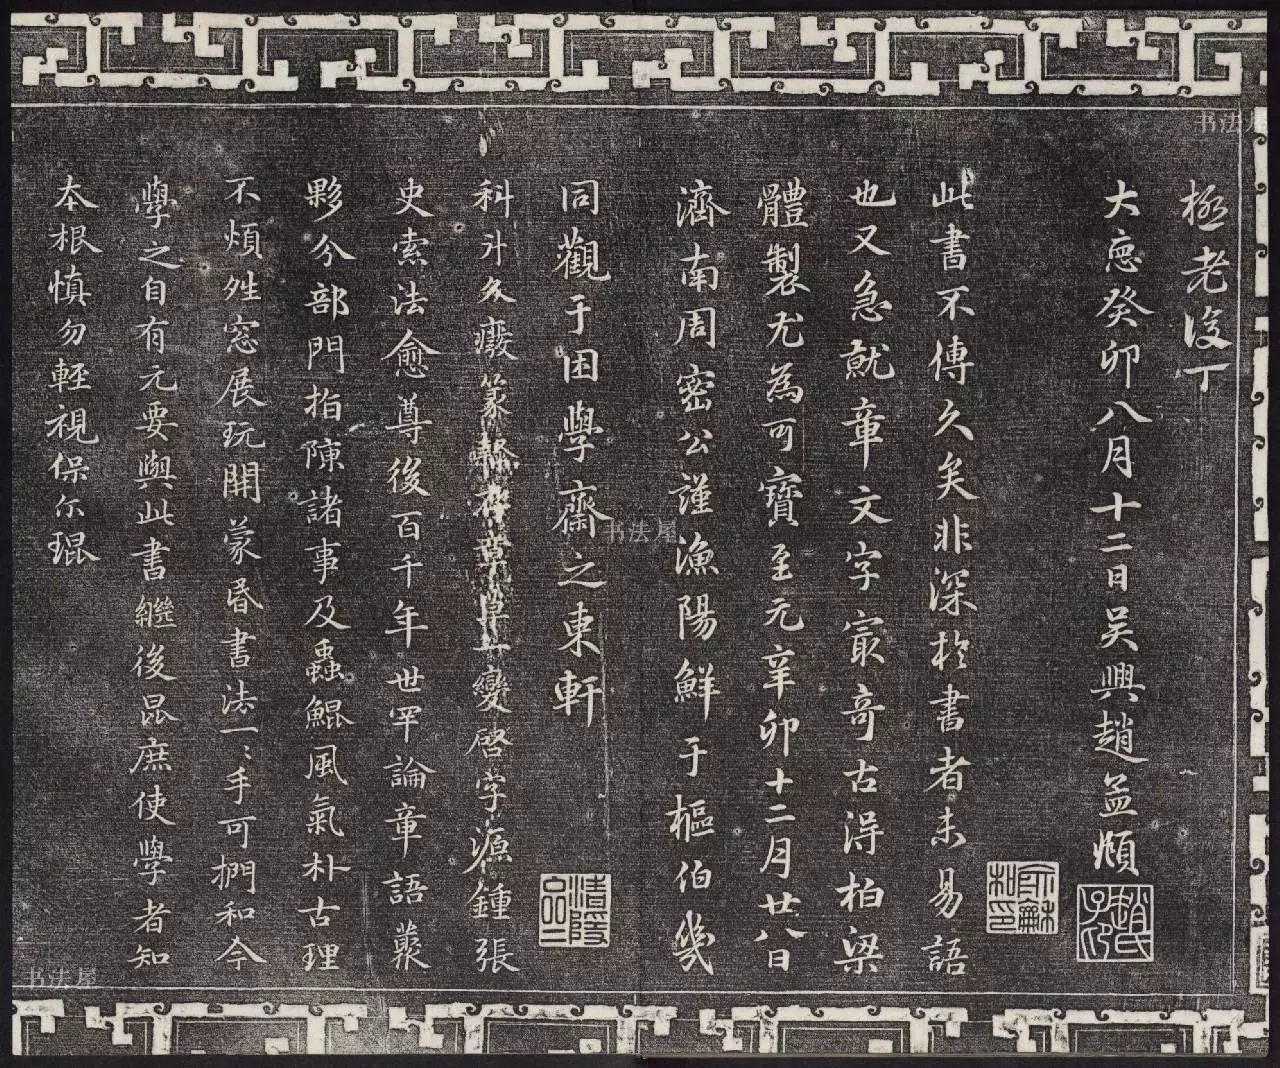 極老後丁
大悳癸卯八月十二日吴興趙孟頫
此書不傳久矣非深於書者未易語
也又急就章文字冣竒古淂柏梁
體製尤為可寶至元辛卯十二月廿八日
濟南周密公謹漁陽鮮于樞伯幾
同觀于困學齋之東軒
科斗久癈篆章草一變啓字源鍾張
史索法愈尊後百千年世罕論章語藂
夥分部門指陳諸事及蟲鯤風氣朴古理
不煩窓展玩開蒙昬書法一〻手可捫和今
學之自有元要與此書繼後昆庶使學者知
本根慎勿輕視保尓琨
趙氏子卬
書法屋
書法屋